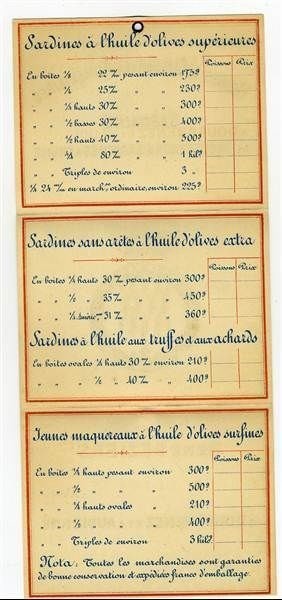 Sardines à l'huile d'olives supérieures
Poissons Prix
En boîtes 1/8 22% pesant environ 175g
" " 1/4 25% " " 250g
" " 1/4 hauts 30% " " 300g
" " 1/2 basses 30% " " 400g
" " 1/2 hauts 40% " " 500g
" " 4/4 80% " " 1 kilo
" " Triples de environ 3 "
1/4 24% en march. ordinaire, environ 225g
Sardines sans arêtes à l'huile d'olives extra
Poissons Prix
En boîtes 1/4 hauts 30% pesant environ 300g
" " 1/2 " 35% " " 450g
" " 31% " " 360g
Sardines à l'huile aux truffes et aux achards
En boîtes ovales 1/4 hauts 30% environ 210g
" " " 1/2 " 40% " 400g
Jeunes maquereaux à l'huile d'olives surfines
Poissons Prix
En boîtes 1/4 hauts pesant environ 300g
" " 1/2 " " 500g
" " 1/4 hauts ovales " 210g
" " 1/2 " " 400g
" " Triples de environ 3 kilo
Nota: Toutes les marchandises sont garanties
de bonne conservation et expédiées franco d'emballage.